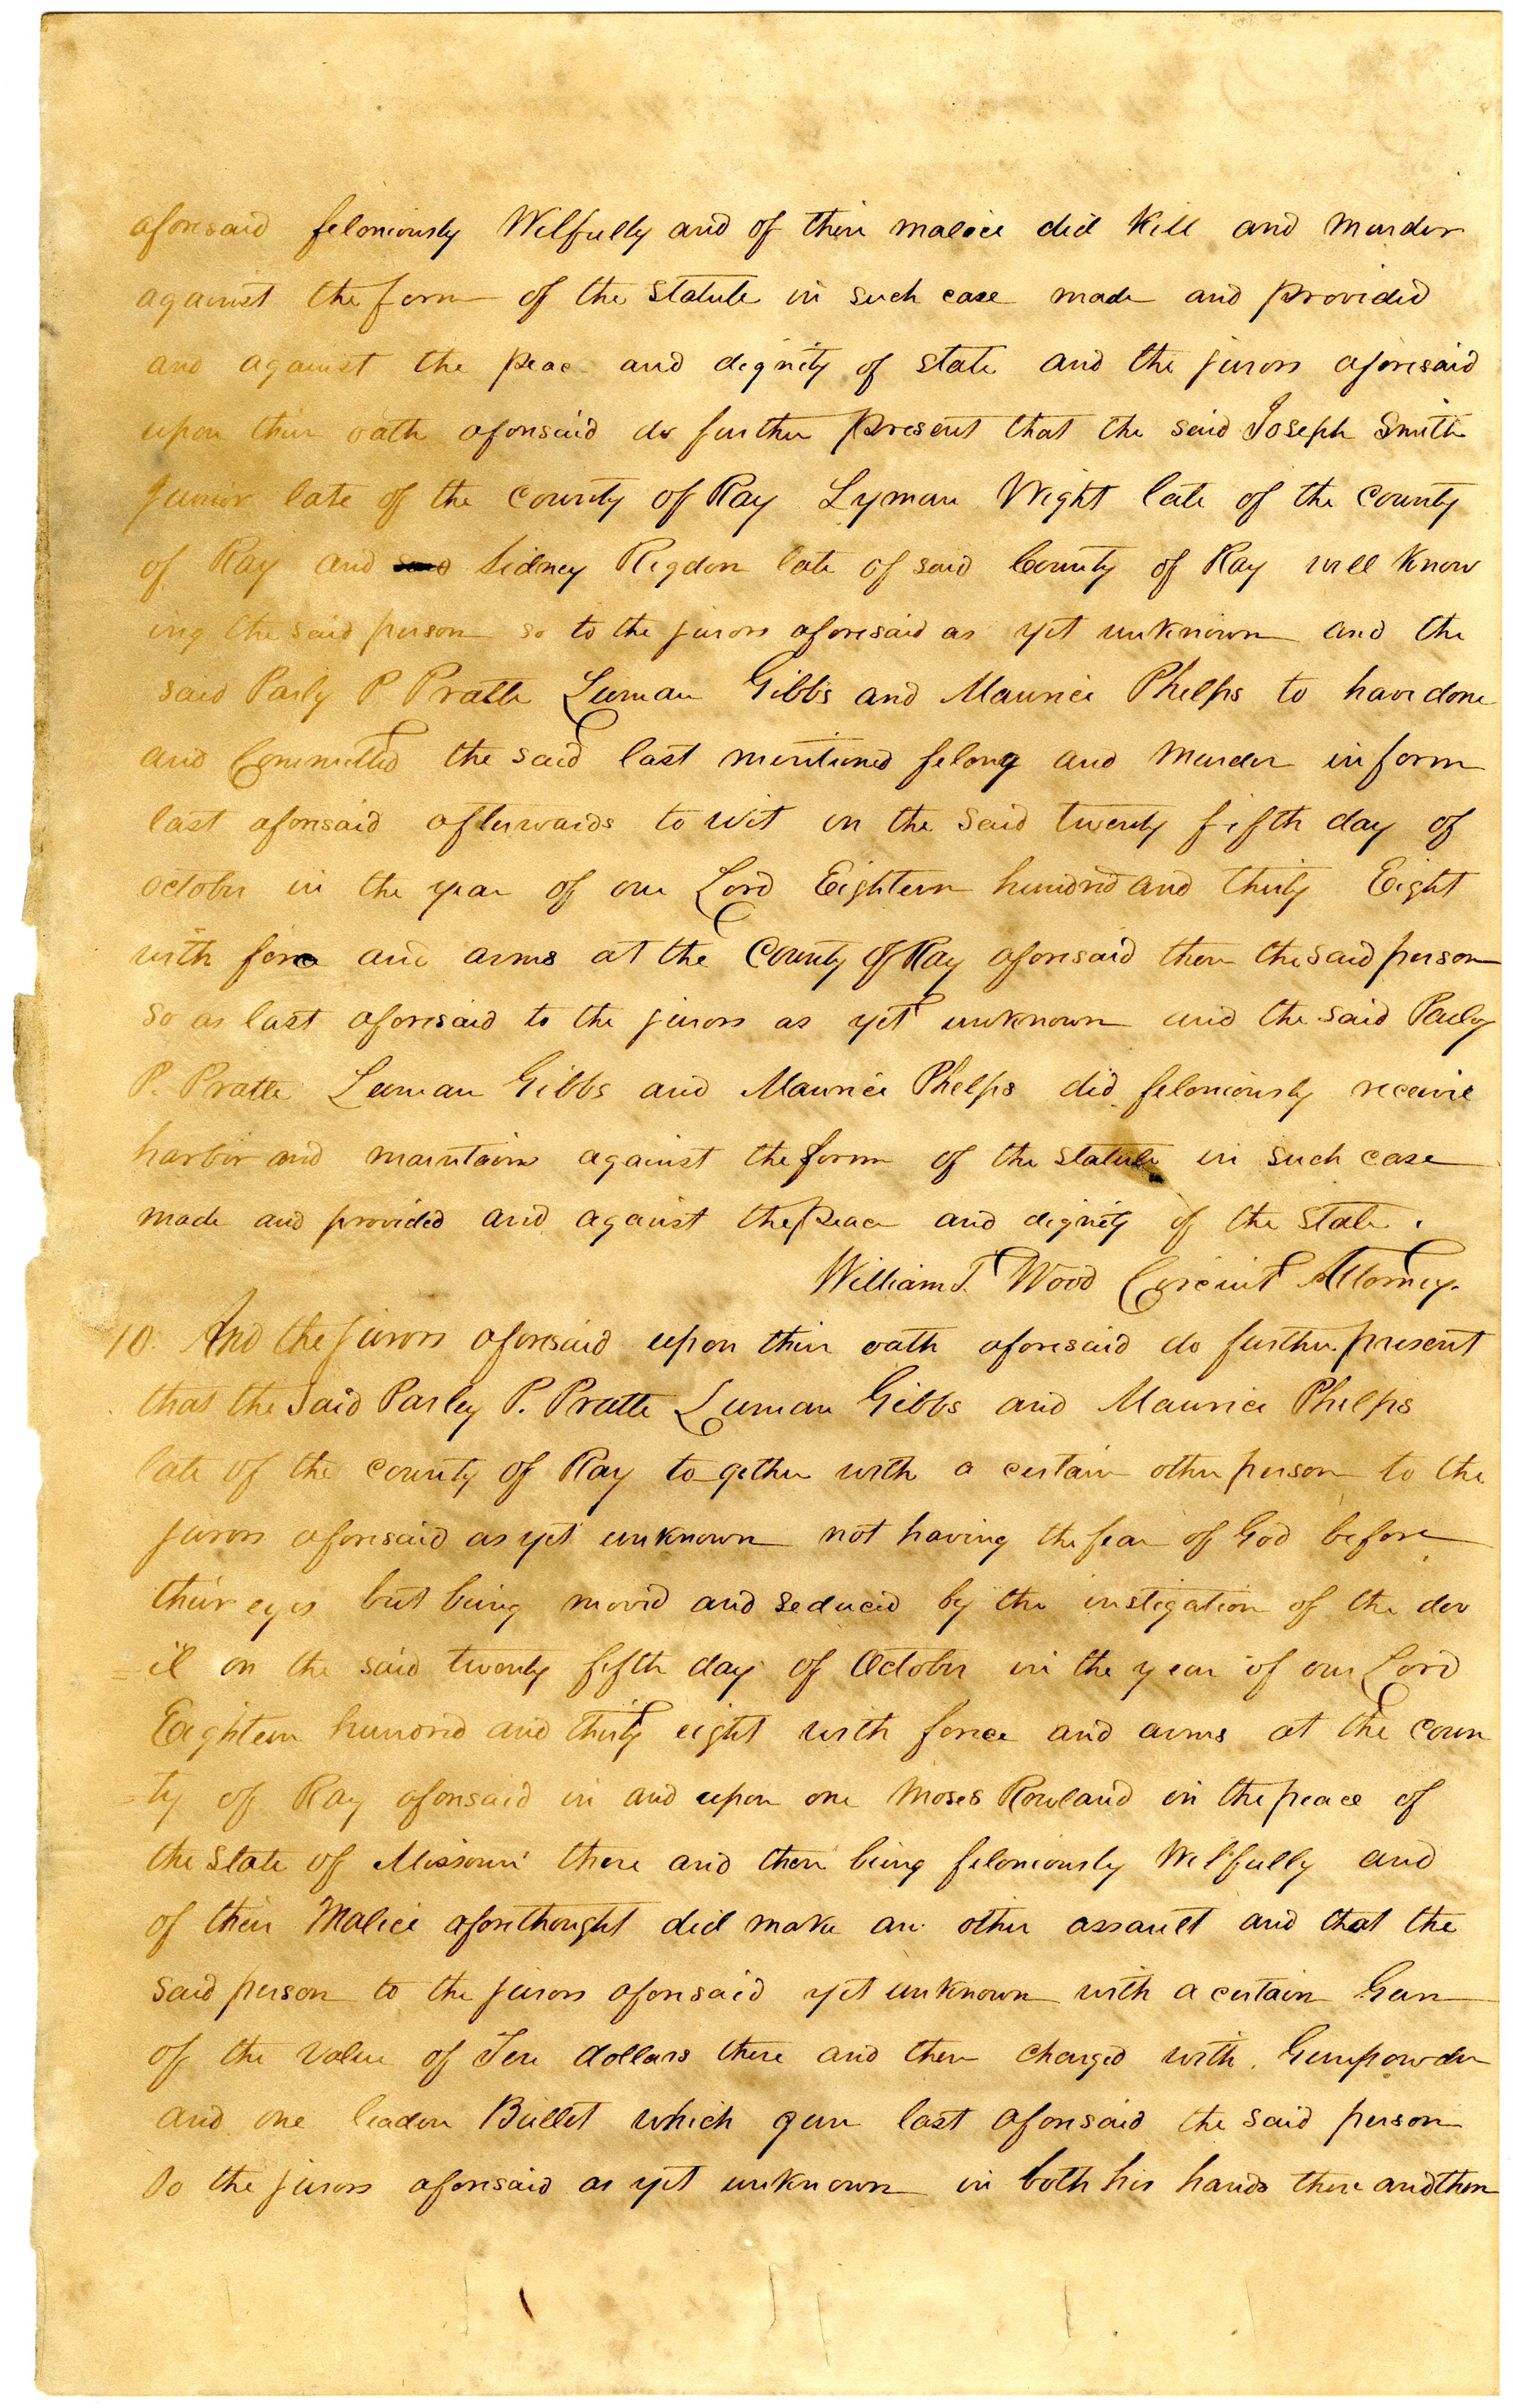 aforesaid feloniously Wilfully and of their malice did Kill and Murder
against the form of the Statute in such case made and provided
and against the peac and dignity of state and the jurors aforesaid
upon their oath aforesaid do further present that the said Joseph Smith
Junior late of the county of Ray Lyman Wight late of the county
of Ray and Sidney Rigdon late of said County of Ray well Know
ing the said person so to the jurors aforesaid as yet unknown and the
said Parly P. Pratte Luman Gibbs and Maurice Phelps to have done
and Committed the said last mentioned felony and Murder in form
last aforesaid afterwards to wit on the said twenty fifth day of
October in the year of our Lord Eighteen hundred and thirty Eight
with force and arms at the County of Ray aforesaid then the said person
so as last aforesaid to the jurors as yet unknown and the said Parly
P. Pratte Luman Gibbs and Maurice Phelps did feloniously receive
harbor and maintain against the form of the statute in such case
made and provided and against the peace and dignity of the State.
William T. Wood Circuit Attorney.
10. And the jurors aforesaid upon their oath aforesaid do further present
that the Said Parley P. Pratte Luman Gibbs and Maurice Phelps
late of the county of Ray to gether with a certain other person to the
jurors aforesaid as yet unknown not having the fear of God before
their eyes but being moved and seduced by the instigation of the dev
=il on the said twenty fifth day of October in the year of our Lord
Eighteen hundred and thirty eight with force and arms at the coun
=ty of Ray aforesaid in and upon one Moses Rowland in the peace of
the State of Missouri there and then being feloniously Wilfully and
of their Malice aforethought did make an other assault and that the
said person to the jurors aforesaid yet unknown with a certain Gun
of the value of Ten dollars there and then charged with Gunpowder
and one leaden Bullet which gun last aforesaid the said person
to the jurors aforesaid as yet unknown in both his hands there and then